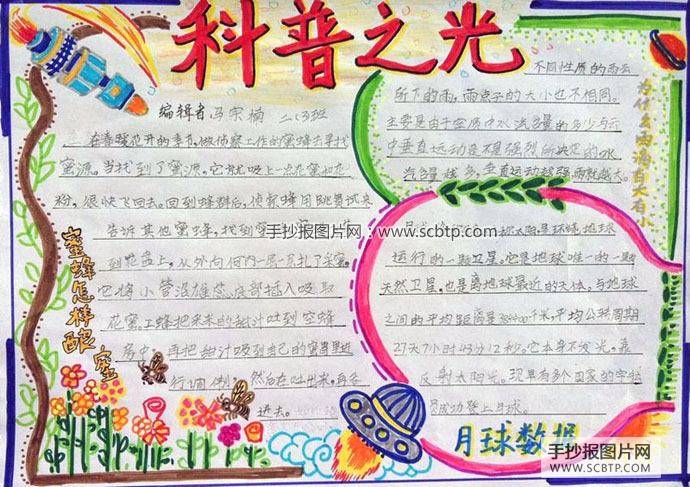 科普之光
编辑者 冯宗楠 二(3)班
蜜蜂怎样酿蜜
在春暖花开的季节,做侦察工作的蜜蜂去寻找
蜜源。当找到了蜜源,它就吸上一点花蜜和花
粉,很快飞回去。回到蜂群后,侦察蜂用跳舞试来
告诉其他蜜蜂,找到
到花蕊上,从外向
花蜜工蜂把采来的甜汁吐到空蜂
房中,再把甜汁吸到自己的蜜胃里进
行调制,然后在吐出来,再吞
进去。
为什么雨滴有大有小
不同性质的雨云
所下的雨,雨点子的大小也不相同。
主要是由于空质中水汽含量的多少与云
中垂直运动是不是强烈所决定的,水
汽含量越多,垂直运动越强雨就越大。
月球数据
环绕地球
运行的一颗卫星。它是地球唯一的一颗
天然卫星,也是离地球最近的天体,与地球
之间的平均距离是384400千米,平均公转周期
27天7小时43分12秒。它本身不发光,靠
反射太阳光。现具有多个国家的宇航
员成功登上月球。
手抄报图片网:www.scbtp.com
手抄报图片网
WWW.SCBTP.COM